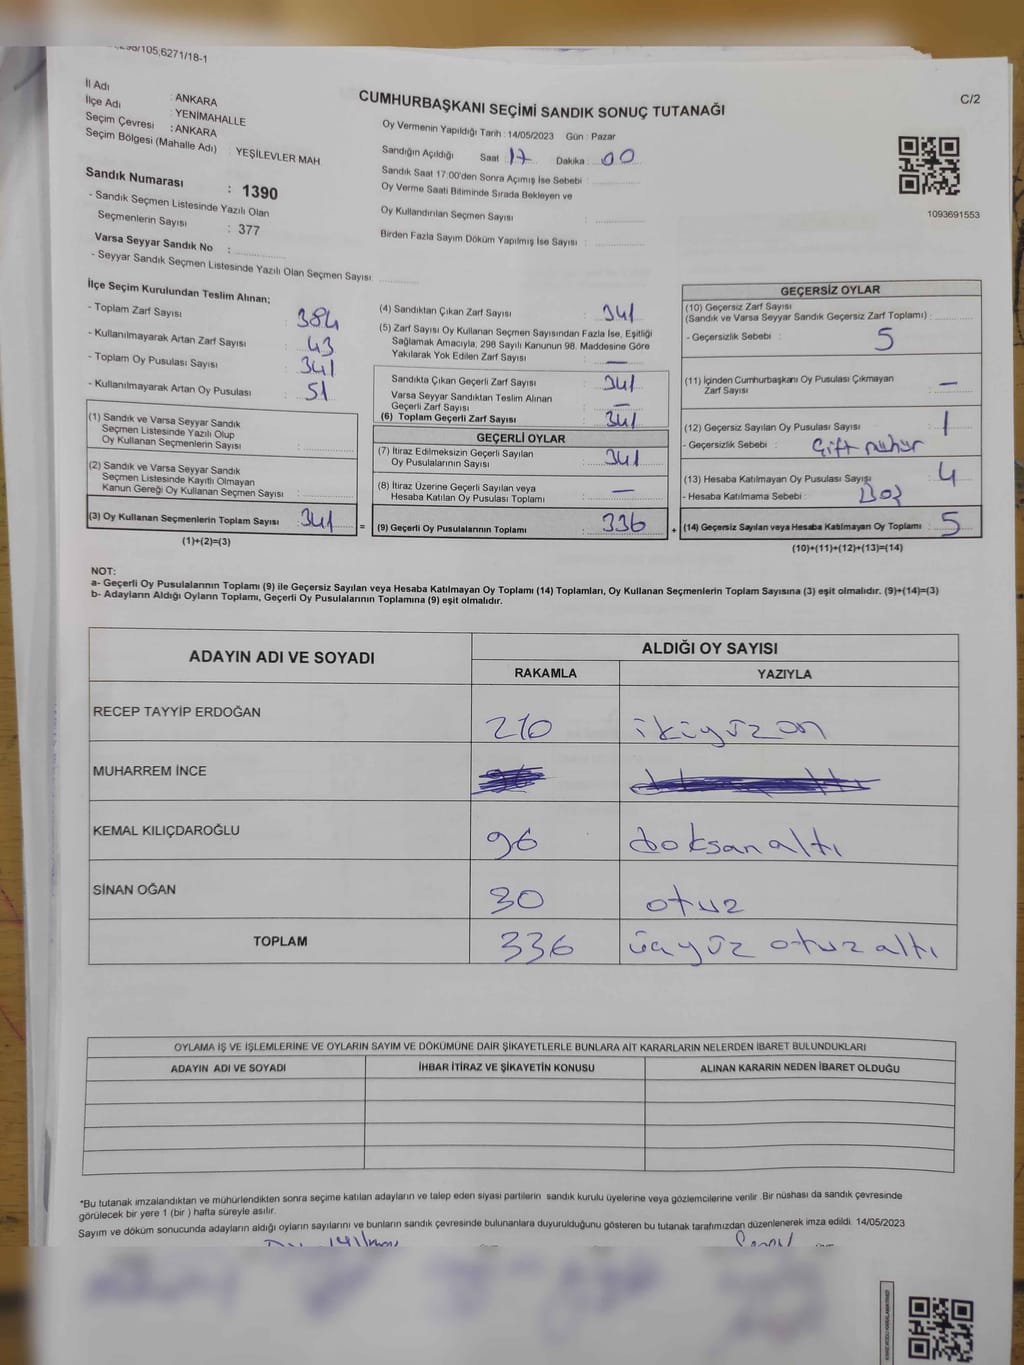 298/105,6271/18-1
İl Adı : ANKARA
İlçe Adı : YENİMAHALLE
Seçim Çevresi : ANKARA
Seçim Bölgesi (Mahalle Adı) : YEŞİLEVLER MAH
CUMHURBAŞKANI SEÇİMİ SANDIK SONUÇ TUTANAĞI
C/2
Oy Vermenin Yapıldığı Tarih : 14/05/2023 Gün : Pazar
Sandığın Açıldığı Saat 17 Dakika : 00
Sandık Saat 17:00'den Sonra Açımış İse Sebebi :
Oy Verme Saati Bitiminde Sırada Bekleyen ve
Oy Kullandırılan Seçmen Sayısı :
Birden Fazla Sayım Döküm Yapılmış İse Sayısı :
1093691553
Sandık Numarası : 1390
- Sandık Seçmen Listesinde Yazılı Olan
Seçmenlerin Sayısı : 377
Varsa Seyyar Sandık No :
- Seyyar Sandık Seçmen Listesinde Yazılı Olan Seçmen Sayısı:
İlçe Seçim Kurulundan Teslim Alınan;
- Toplam Zarf Sayısı : 384
- Kullanılmayarak Artan Zarf Sayısı : 43
- Toplam Oy Pusulası Sayısı : 341
- Kullanılmayarak Artan Oy Pusulası : 51
(1) Sandık ve Varsa Seyyar Sandık
Seçmen Listesinde Yazılı Olup
Oy Kullanan Seçmenlerin Sayısı :
(2) Sandık ve Varsa Seyyar Sandık
Seçmen Listesinde Kayıtlı Olmayan
Kanun Gereği Oy Kullanan Seçmen Sayısı :
(3) Oy Kullanan Seçmenlerin Toplam Sayısı : 341 =
(1)+(2)=(3)
(4) Sandıktan Çıkan Zarf Sayısı : 341
(5) Zarf Sayısı Oy Kullanan Seçmen Sayısından Fazla İse, Eşitliği
Sağlamak Amacıyla, 298 Sayılı Kanunun 98. Maddesine Göre
Yakılarak Yok Edilen Zarf Sayısı : —
Sandıkta Çıkan Geçerli Zarf Sayısı : 341
Varsa Seyyar Sandıktan Teslim Alınan
Geçerli Zarf Sayısı : —
(6) Toplam Geçerli Zarf Sayısı : 341
GEÇERLİ OYLAR
(7) İtiraz Edilmeksizin Geçerli Sayılan
Oy Pusulalarının Sayısı : 341
(8) İtiraz Üzerine Geçerli Sayılan veya
Hesaba Katılan Oy Pusulası Toplamı : —
(9) Geçerli Oy Pusulalarının Toplamı : 336 +
GEÇERSİZ OYLAR
(10) Geçersiz Zarf Sayısı
(Sandık ve Varsa Seyyar Sandık Geçersiz Zarf Toplamı) :
- Geçersizlik Sebebi : 5
(11) İçinden Cumhurbaşkanı Oy Pusulası Çıkmayan
Zarf Sayısı : —
(12) Geçersiz Sayılan Oy Pusulası Sayısı : 1
- Geçersizlik Sebebi : Çift mühür
(13) Hesaba Katılmayan Oy Pusulası Sayısı : 4
- Hesaba Katılmama Sebebi : Boş
(14) Geçersiz Sayılan veya Hesaba Katılmayan Oy Toplamı : 5
(10)+(11)+(12)+(13)=(14)
NOT:
a- Geçerli Oy Pusulalarının Toplamı (9) ile Geçersiz Sayılan veya Hesaba Katılmayan Oy Toplamı (14) Toplamları, Oy Kullanan Seçmenlerin Toplam Sayısına (3) eşit olmalıdır. (9)+(14)=(3)
b- Adayların Aldığı Oyların Toplamı, Geçerli Oy Pusulalarının Toplamına (9) eşit olmalıdır.
ADAYIN ADI VE SOYADI
ALDIĞI OY SAYISI
RAKAMLA YAZIYLA
RECEP TAYYİP ERDOĞAN 210 ikiyüz on
MUHARREM İNCE
KEMAL KILIÇDAROĞLU 96 doksan altı
SİNAN OĞAN 30 otuz
TOPLAM 336 üçyüz otuz altı
OYLAMA İŞ VE İŞLEMLERİNE VE OYLARIN SAYIM VE DÖKÜMÜNE DAİR ŞİKAYETLERLE BUNLARA AİT KARARLARIN NELERDEN İBARET BULUNDUKLARI
ADAYIN ADI VE SOYADI İHBAR İTİRAZ VE ŞİKAYETİN KONUSU ALINAN KARARIN NEDEN İBARET OLDUĞU
*Bu tutanak imzalandıktan ve mühürlendikten sonra seçime katılan adayların ve talep eden siyasi partilerin sandık kurulu üyelerine veya gözlemcilerine verilir .Bir nüshası da sandık çevresinde
görülecek bir yere 1 (bir ) hafta süreyle asılır.
Sayım ve döküm sonucunda adayların aldığı oyların sayılarını ve bunların sandık çevresinde bulunanlara duyurulduğunu gösteren bu tutanak tarafımızdan düzenlenerek imza edildi. 14/05/2023